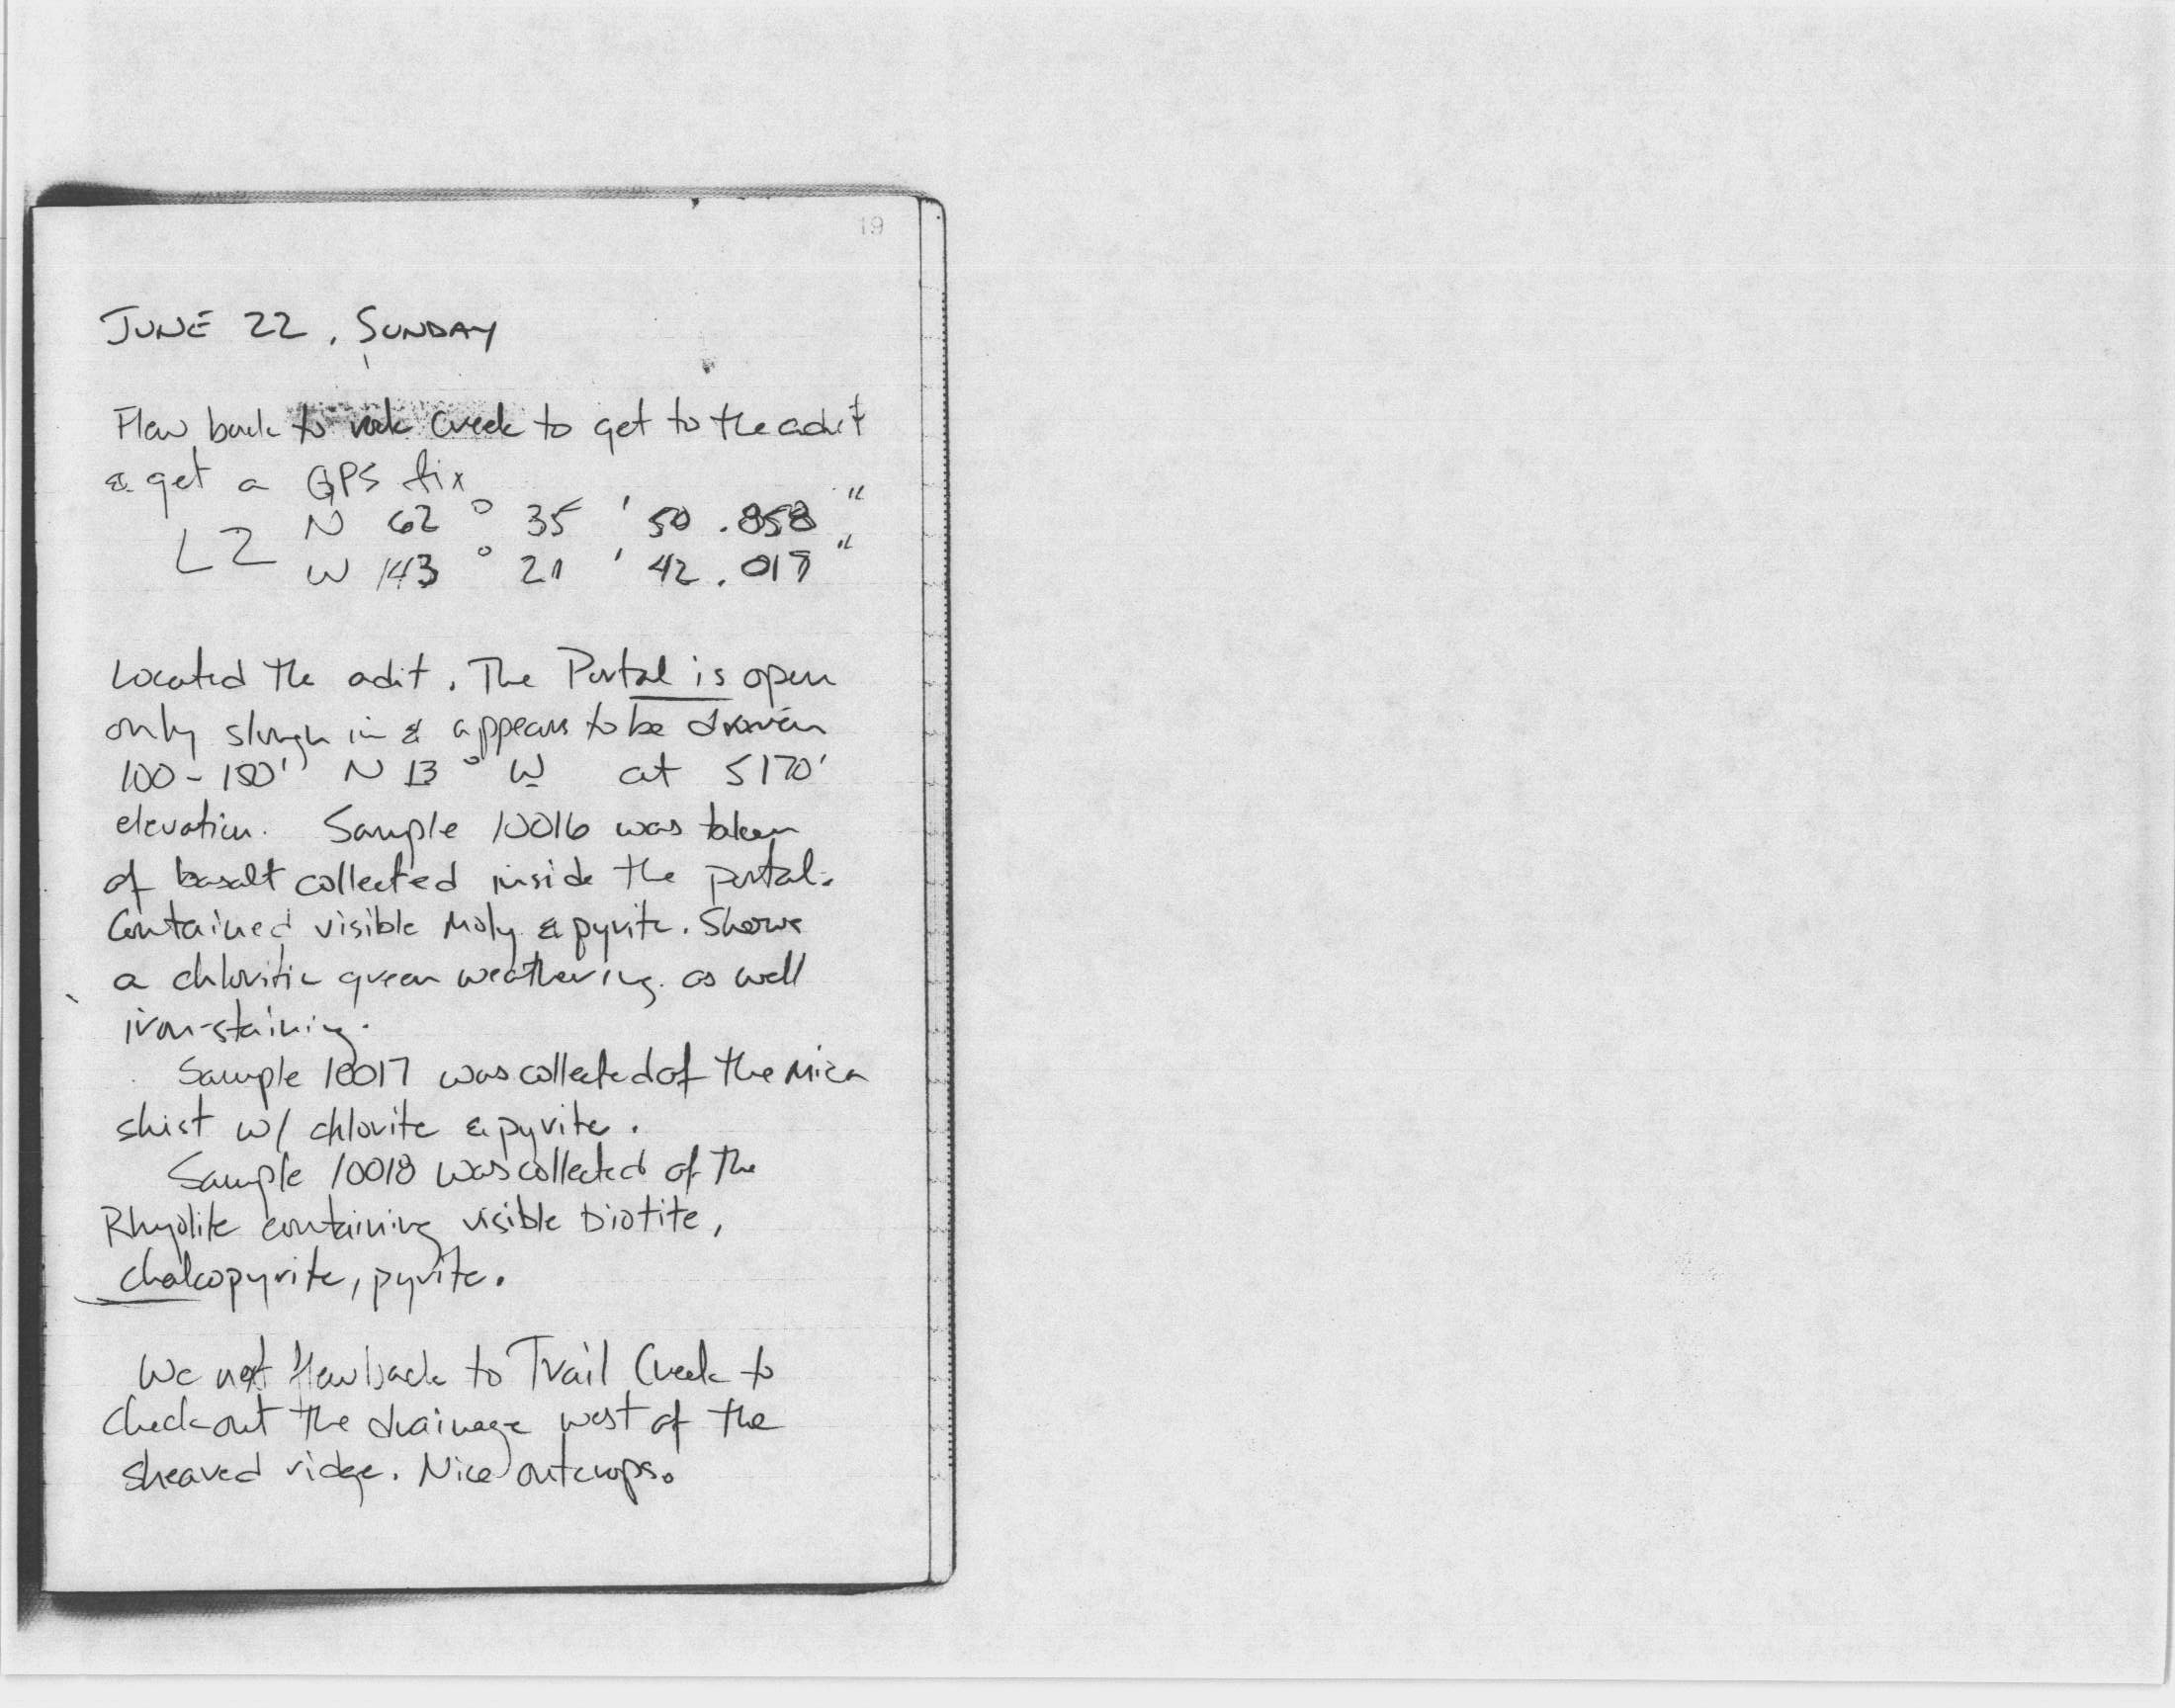 19
JUNE 22, SUNDAY
Flew back to rock Creek to get to the adit
& get a GPS fix
L2 N 62° 35' 50.858"
W 143° 21' 42.017"
Located the adit. The Portal is open
only slough in & appears to be driven
100-150' N 13° W at 5170'
elevation. Sample 10016 was taken
of basalt collected inside the portal.
Contained visible Moly & pyrite. Shows
a chloritic green weathering. as well
iron-staining.
Sample 10017 was collected of the mica
shist w/ chlorite & pyrite.
Sample 10018 was collected of the
Rhyolite containing visible biotite,
chalcopyrite, pyrite.
We next flew back to Trail Creek to
check out the drainage west of the
sheared ridge. Nice outcrops.